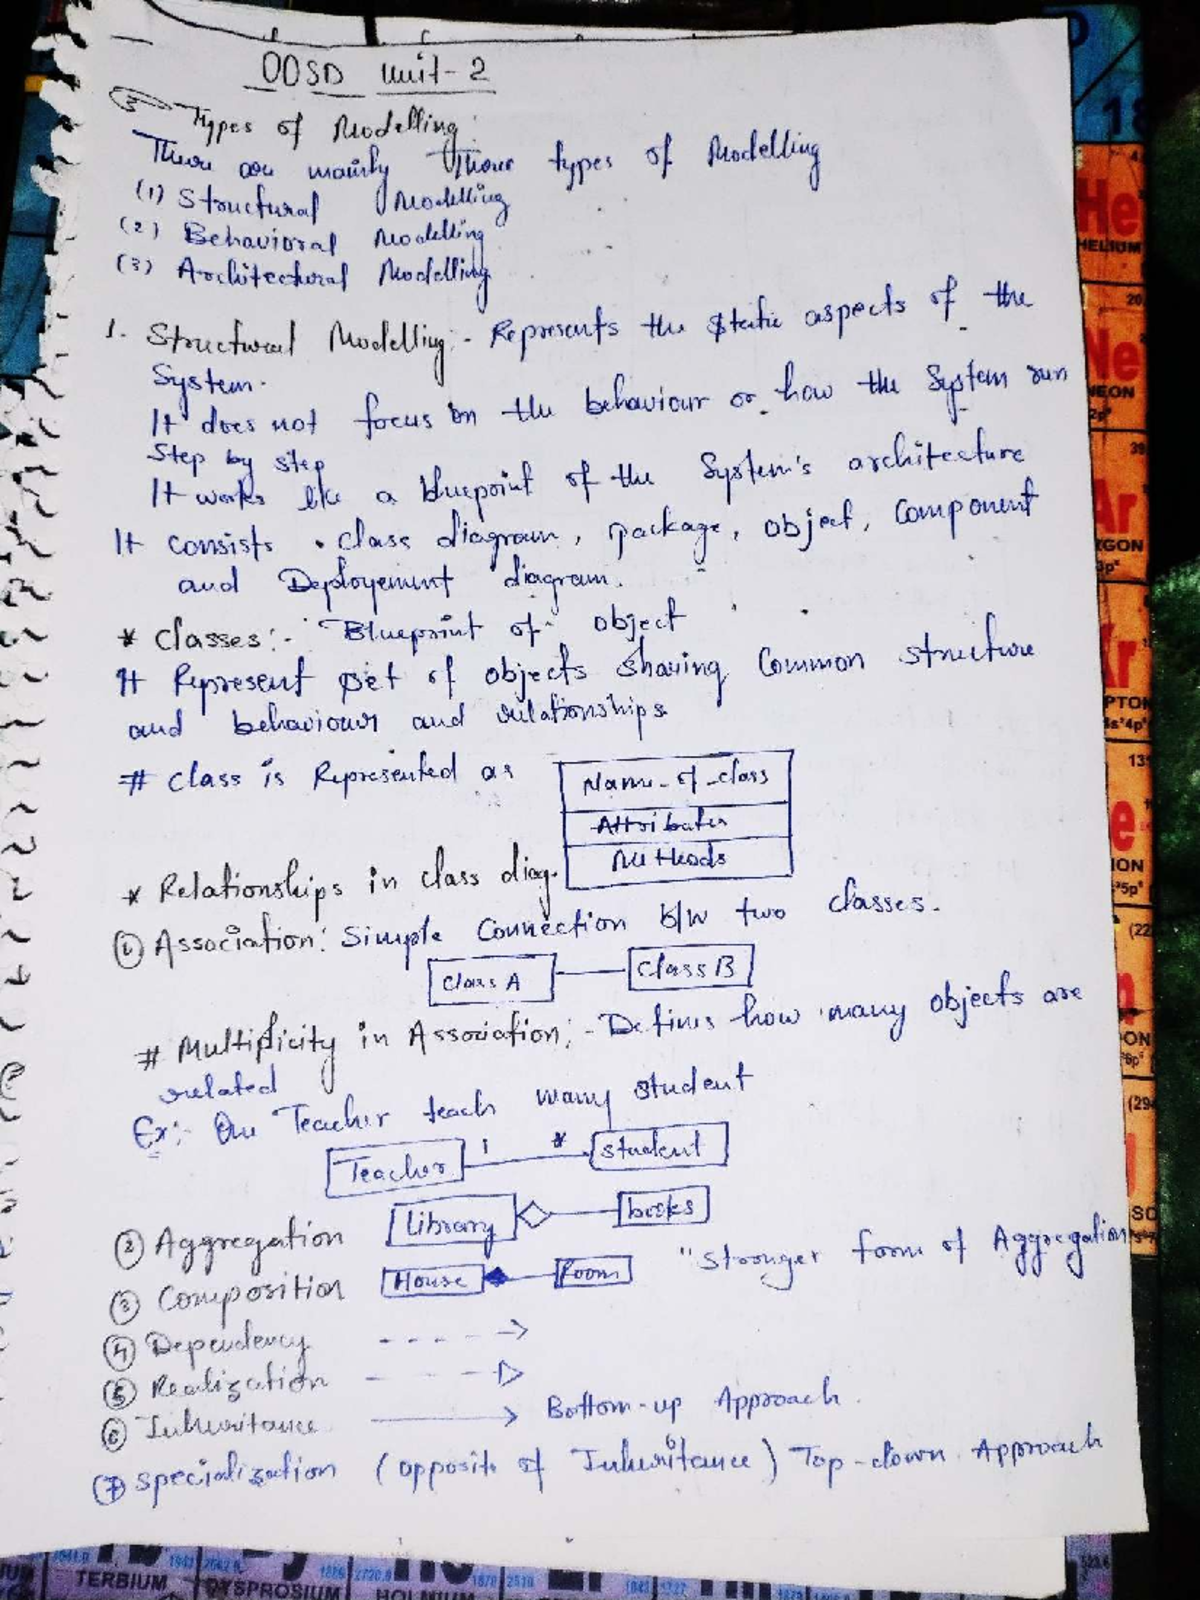 OOSD Unit-2
Types of Modelling:
There are mainly Three types of Modelling
(1) Structural Modelling
(2) Behavioral Modelling
(3) Architectural Modelling
1. Structural Modelling:- Represents the static aspects of the
System.
It does not focus on the behaviour or how the System run
Step by step
It works like a blueprint of the System's architecture
It consists . class diagram, package, object, Component
and Deployement diagram.
* Classes:- Blueprint of object
It Represent set of objects sharing Common structure
and behaviour and relationships
# Class is Represented as
Name_of_class
Attributes
Methods
* Relationships in class diag.
① Association: Simple Connection b/w two classes.
Class A
Class B
# Multiplicity in Association:- Defines how many objects are
related
Ex:- One Teacher teach many student
Teacher 1 * student
② Aggregation Library books
③ Composition House Room "Stronger form of Aggregation
④ Dependency
⑤ Realization
⑥ Inheritance Bottom-up Approach.
⑦ Specialization (opposite of Inheritance) Top-down Approach
18
He
HELIUM
20
Ne
NEON
39
Ar
Kr
(22
(29
TERBIUM
DYSPROSIUM
HOLMIUM